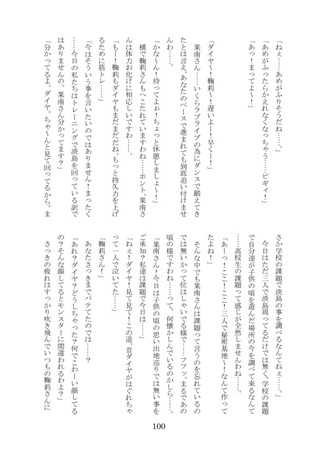 「ねぇ……あめがふりそうだね……。」
「あめがふったらかえれなくなっちゃう……ピギィ！」
「あっ！まってよ～！」
「ダイヤ～！鞠莉～！遅いよー！早くー！」
果南さん……いくらラブライブの為にダンスで鍛えてき
たとは言え、あなたのペースで進まれても到底追い付けませ
んわ……。
「かな～ん！待ってよぉ！ちょっと休憩しましょ～！」
横で鞠莉さんもへこたれていますわね……ホント、果南さ
んは体力お化けに相応しいですわ……。
「もー！鞠莉もダイヤもまだまだだね、もっと持久力を上げ
るために筋トレ……」
「今はそういう事を言いたいのではありません！まったく
……今日の私たちはトレーニングで淡島を回っている訳で
はありませんの、果南さん分かってます？」
「分かってるよ、ダイヤ。ちゃ～んと見て回ってるから。ま
さか学校の課題で淡島の事を調べるなんてねぇ……。」
今日はただ三人で淡島周ってるだけでは無く、学校の課題
で自分達が子供の頃を遊んだ場所の今を調べて来るなんて
……高校生の課題って感じが全然しませんわね……。
「あーっ！ここ！ここ！三人で秘密基地～！なんて作って
たよね！」
そんな中でも果南さんは課題って言うのを忘れているの
では無いかって位はしゃいでる様で……フフッ、まるであの
頃の様ですわね……って、何懐かしんでいるのかしら……。
「果南さん！今日は子供の頃の思い出地巡りでは無い事を
ご承知？私達は課題で今日は……」
「ねぇ！ダイヤ！見て見て！この道、昔ダイヤがはぐれちゃ
って一人で泣いてた……」
「鞠莉さん！」
あなたさっきまでバテてたのでは……？
「あれ？ダイヤ？どうしちゃった？何でこわーい顔してる
の？そんな顔してるとモンスターに間違われるわよ？」
さっきの疲れはすっかり吹き飛んでいつもの鞠莉さんに
100